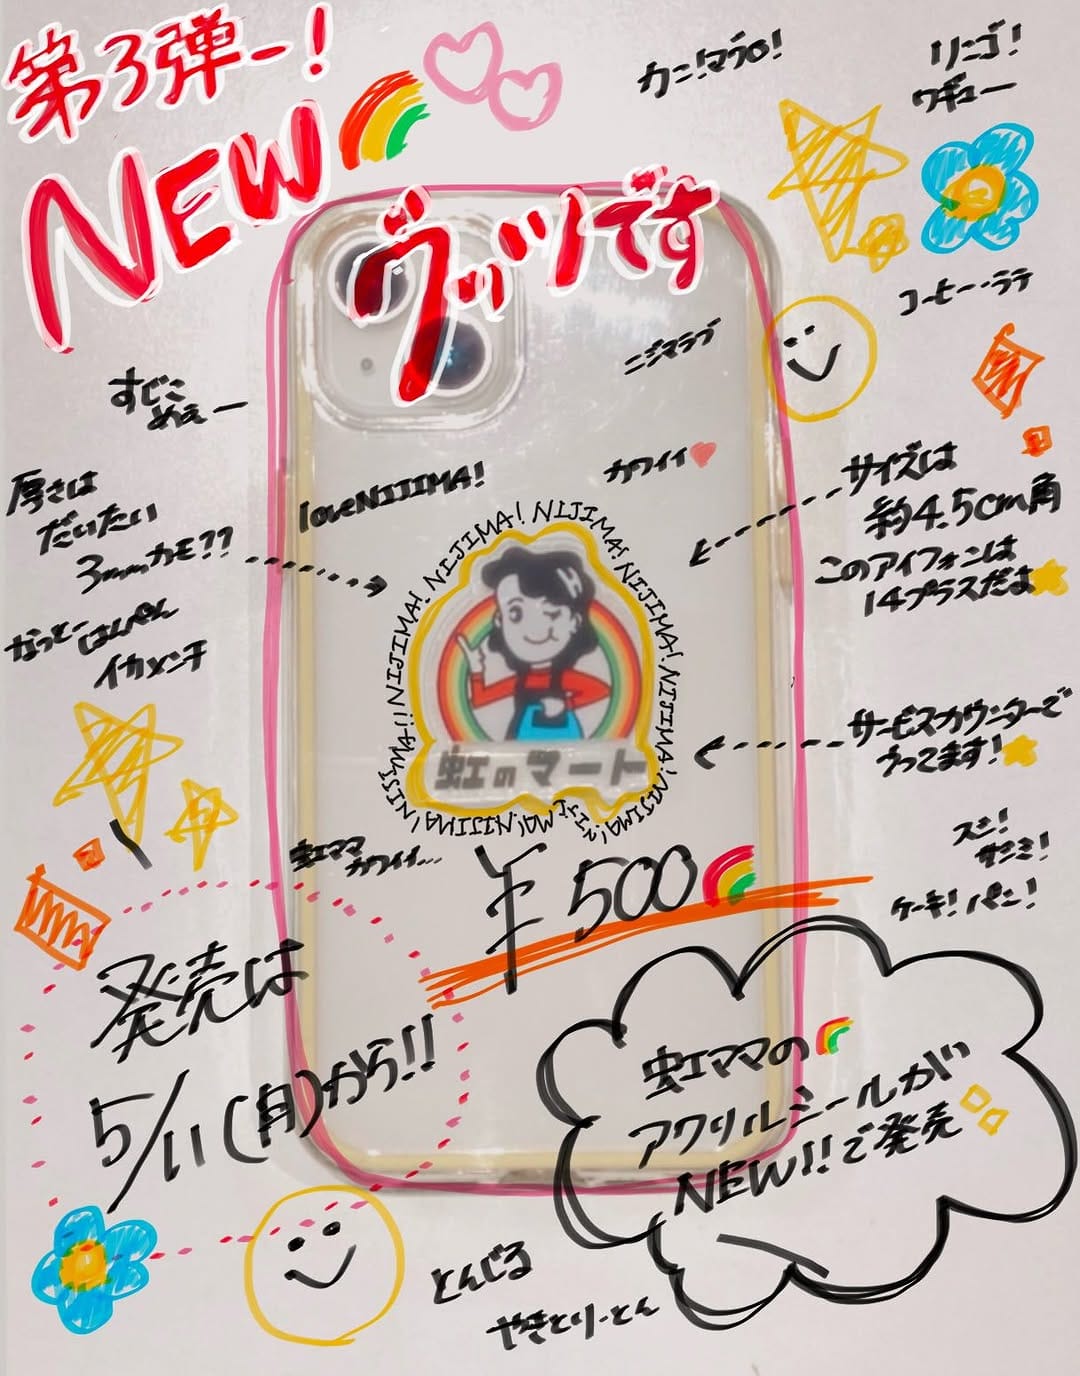 第3弾ー!
NEW
グッツです
カニ!マグロ!
リンゴ!
ウギュー
コーヒー・ラテ
ニジマラブ
すじこ
めぇー
厚さは
だいたい
3mmカモ??
loveNIJIMA!
カワイイ
サイズは
約4.5cm角
このアイフォンは
14プラスだよ
なっとー
はんぺん
イカメンチ
NIJIMA! NIJIMA! NIJIMA! NIJIMA! NIJIMA! NIJIMA! NIJIMA! NIJIMA! NIJIMA!! NIJIMA! NIJIMA!
虹のマート
サービスカウンターで
うってます!
虹ママ
カワイイ...
¥500
スシ!
サシミ!
ケーキ!パン!
発売は
5/11(月)から!!
虹ママの
アクリルシールが
NEW!!で発売
とんじる
やきとりーとん